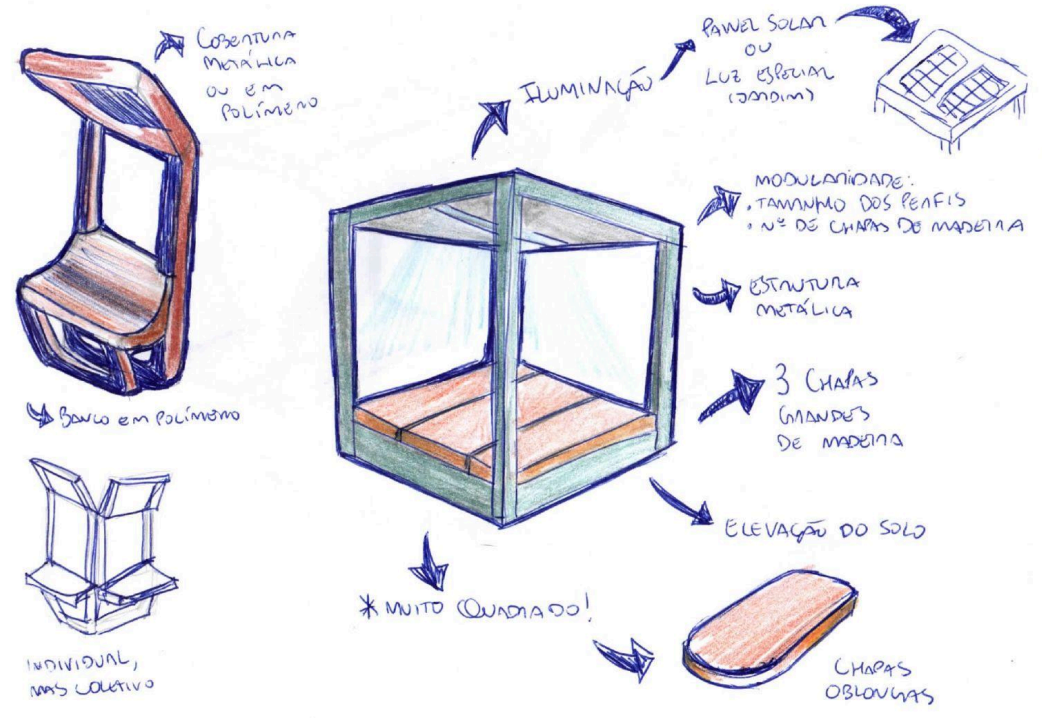 COBERTURA
METÁLICA
OU EM
POLÍMERO
BANCO EM POLÍMERO
INDIVIDUAL,
MAS COLETIVO
ILUMINAÇÃO
PAINEL SOLAR
OU
LUZ ESPECIAL
(JARDIM)
MODULARIDADE:
. TAMANHO DOS PERFIS
. Nº DE CHAPAS DE MADEIRA
ESTRUTURA
METÁLICA
3 CHAPAS
GRANDES
DE MADEIRA
ELEVAÇÃO DO SOLO
* MUITO QUADRADO!
CHAPAS
OBLONGAS